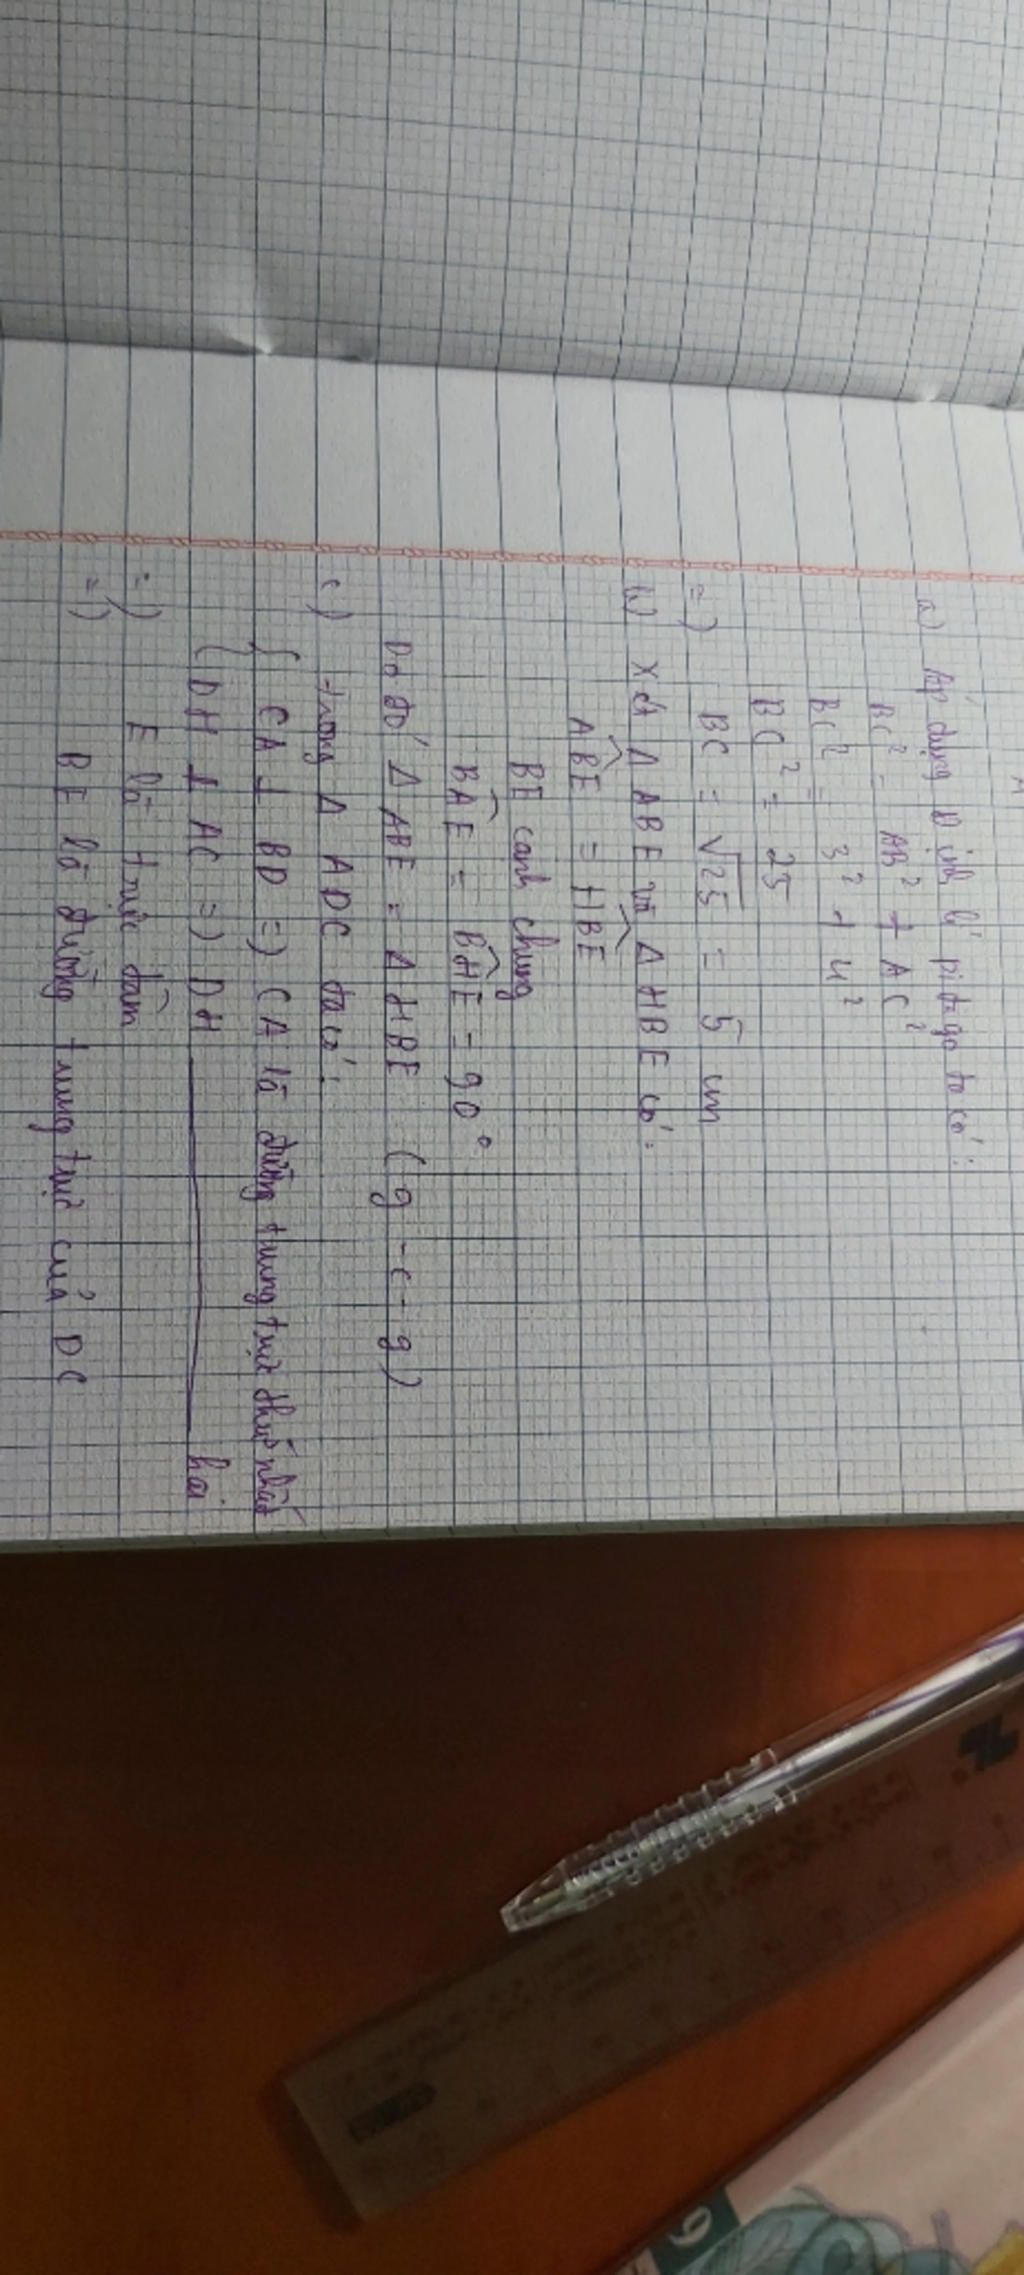 a) Áp dụng Định lí pidago ta có:
BC² = AB² + AC²
BC² = 3² + 4²
BC² = 25
=) BC = √25 = 5 cm
b) Xét Δ ABE và Δ HBE có:
ABE = HBE
BE cạnh chung
BAE = BHE = 90°
Do đó Δ ABE = Δ HBE (g - c - g)
c) trong Δ ADC ta có:
{ CA ⊥ BD =) CA là đường trung trực thứ nhất
{ DH ⊥ AC =) DH ——— hai
=) E là trực tâm
=) BE là đường trung trực của DC
9